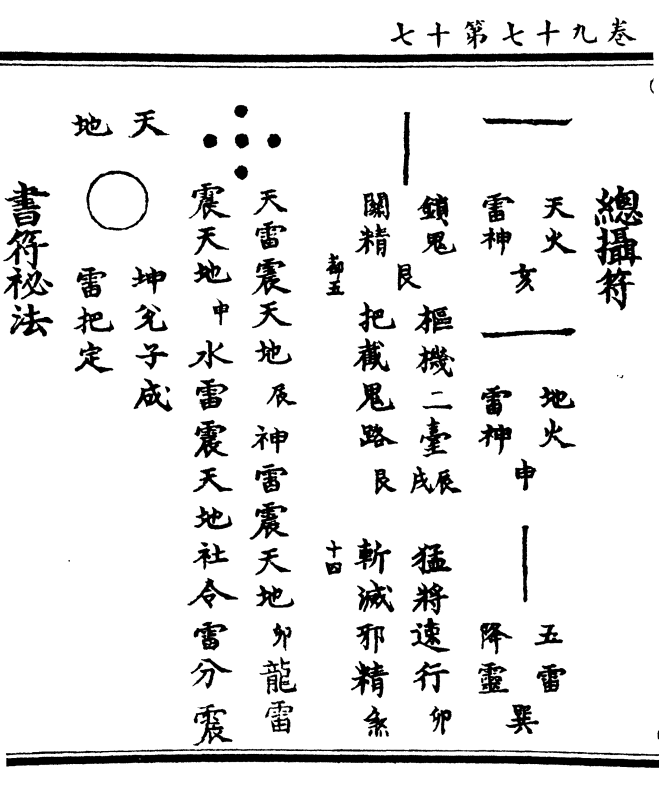 卷九十七第十七
總攝符
天火
雷神
亥
地火
雷神
申
五雷
降靈
巽
鎖鬼
關精
艮
樞機二臺辰戌
把截鬼路艮
猛將速行卯
斬滅邪精
都五
十四
天雷震天地辰神雷震天地卯龍雷
震天地申水雷震天地社令雷分震
天
地
坤兌子成
雷把定
書符祕法